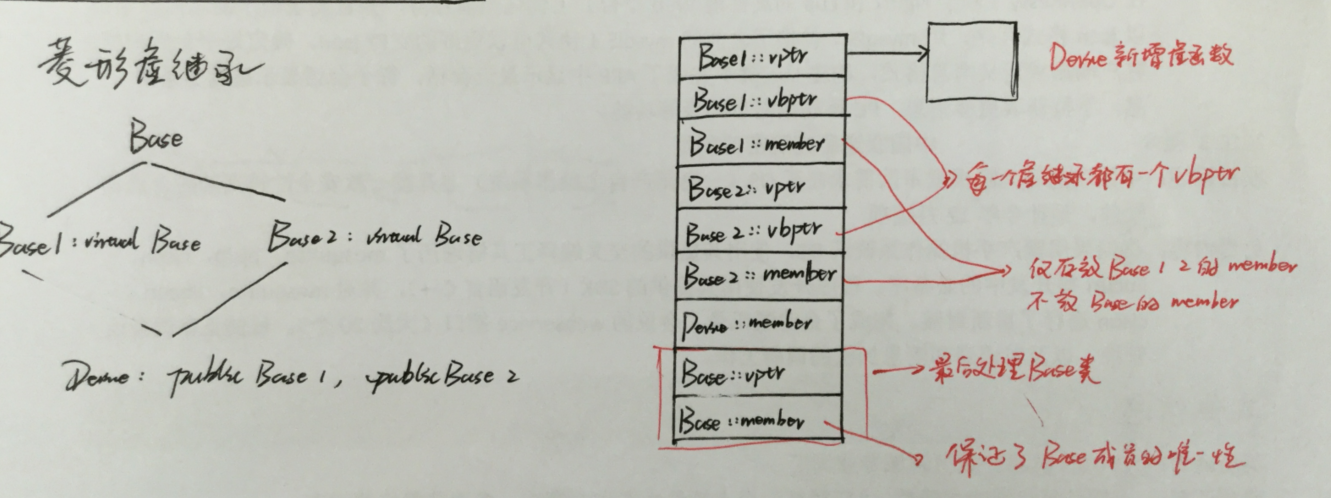 菱形虚继承
Base
Base1 : virtual Base
Base2 : virtual Base
Derive : public Base1, public Base2
Base1::vptr
Base1::vbptr
Base1::member
Base2::vptr
Base2::vbptr
Base2::member
Derive::member
Base::vptr
Base::member
Derive新增虚函数
每一个虚继承都有一个vbptr
仅存放Base1 2的member
不放Base的member
最后处理Base类
保证了Base成员的唯一性